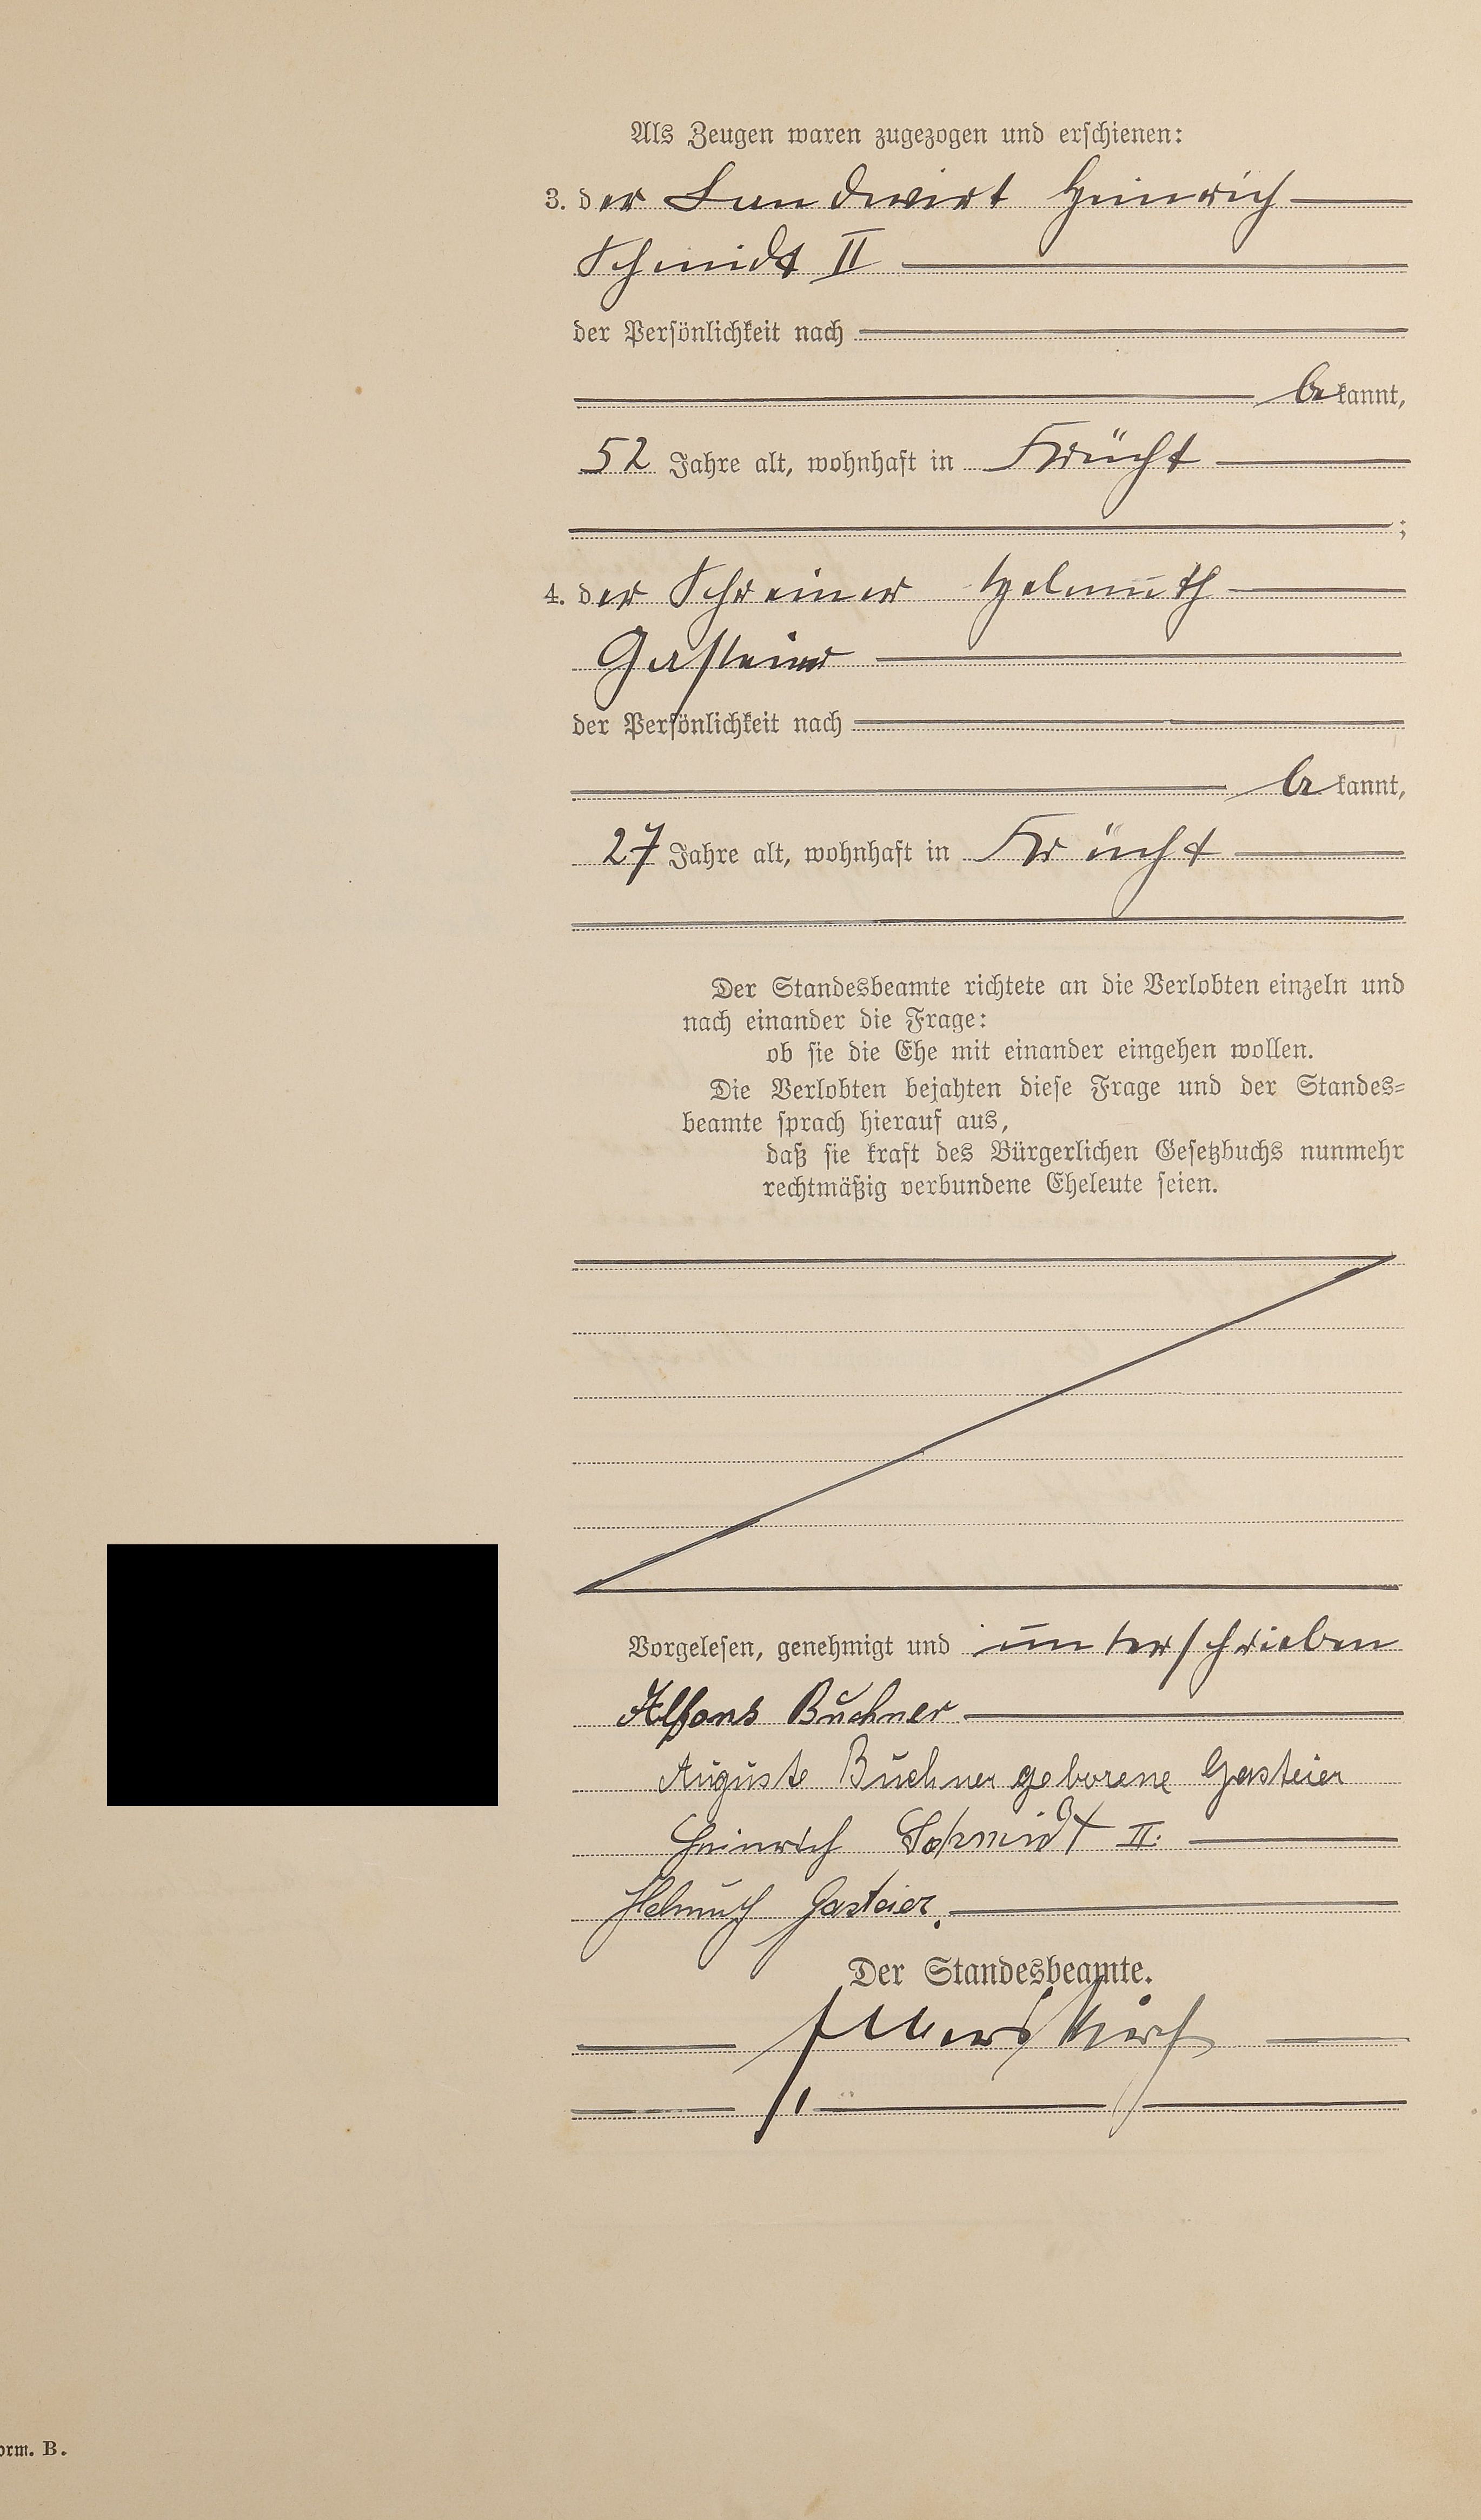 Als Zeugen waren zugezogen und erschienen:
3. der Landwirt Heinrich
Schmidt II
der Persönlichkeit nach
bekannt,
52 Jahre alt, wohnhaft in Frücht
;
4. der Schreiner Helmuth
Gasteier
der Persönlichkeit nach
bekannt,
27 Jahre alt, wohnhaft in Frücht
Der Standesbeamte richtete an die Verlobten einzeln und
nach einander die Frage:
ob sie die Ehe mit einander eingehen wollen.
Die Verlobten bejahten diese Frage und der Standes-
beamte sprach hierauf aus,
daß sie kraft des Bürgerlichen Gesetzbuchs nunmehr
rechtmäßig verbundene Eheleute seien.
Vorgelesen, genehmigt und unterschrieben
Alfons Buchner
Auguste Buchner geborene Gasteier
Heinrich Schmidt II.
Helmuth Gasteier.
Der Standesbeamte.
orm. B.